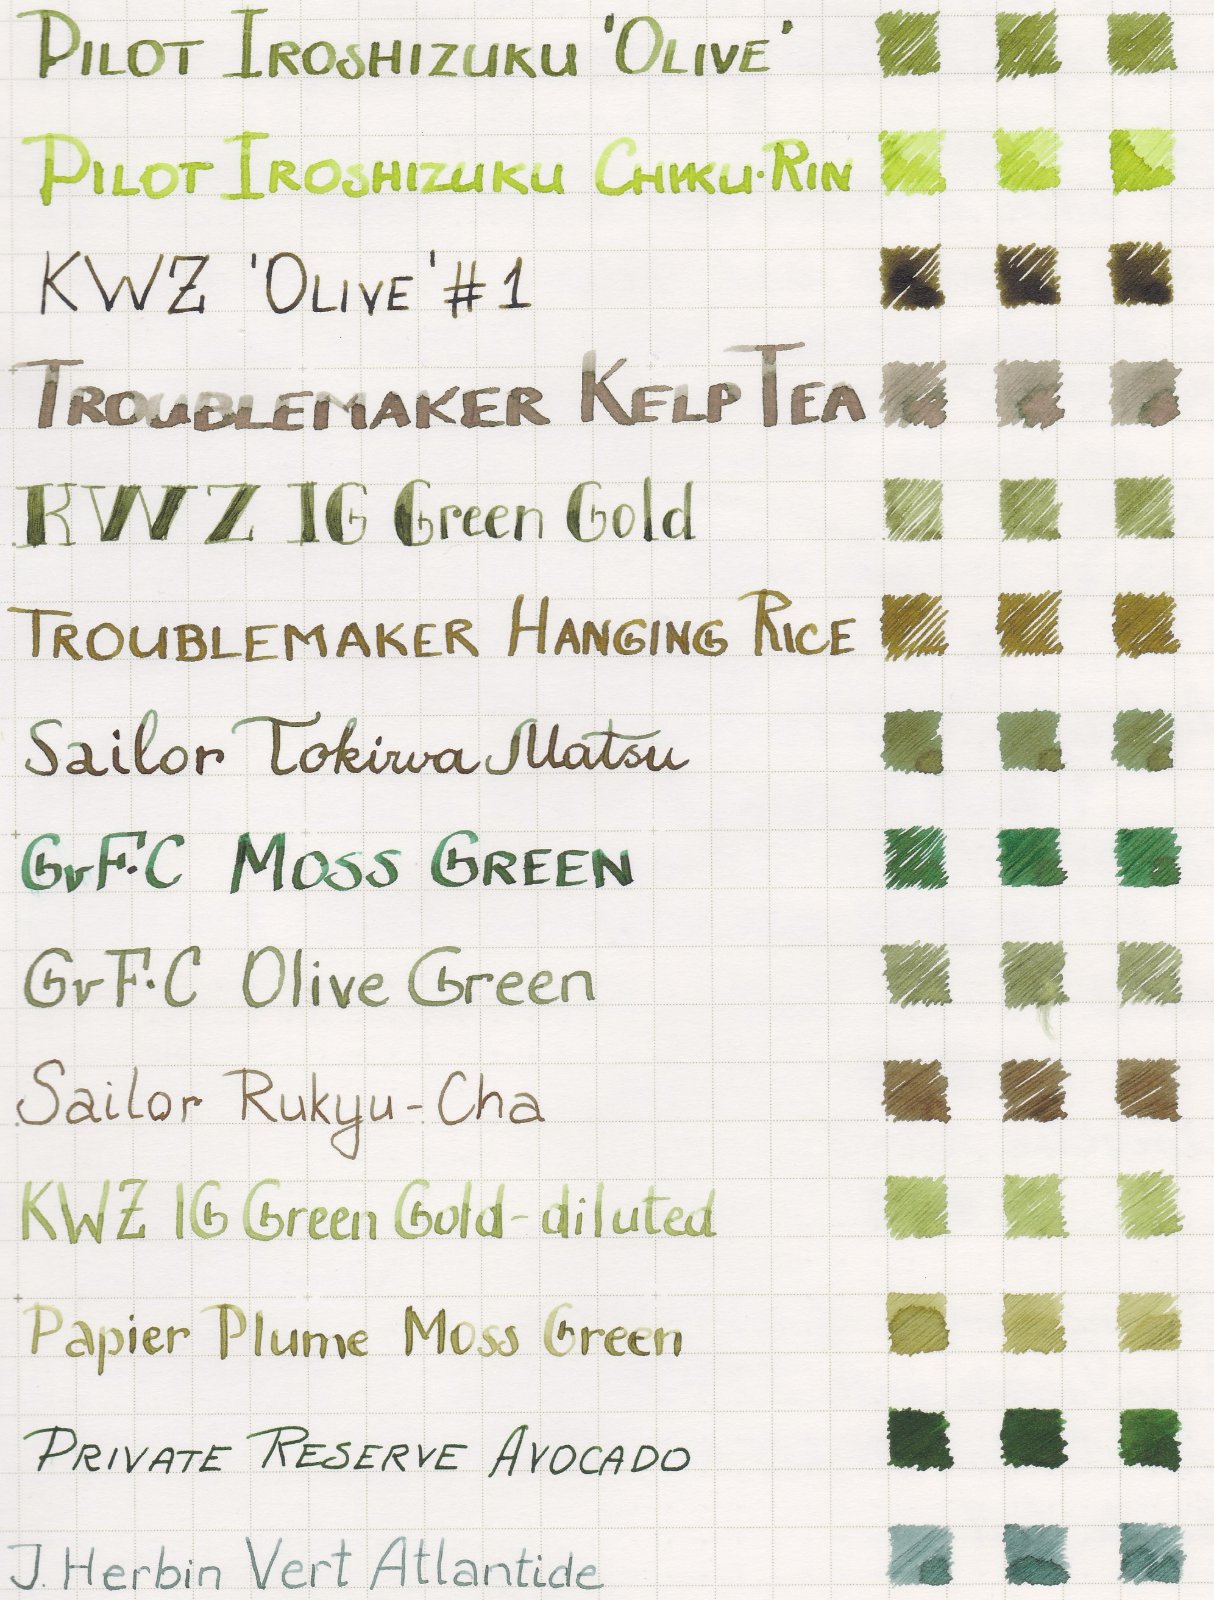 PILOT IROSHIZUKU 'OLIVE'
PILOT IROSHIZUKU CHIKU-RIN
KWZ 'OLIVE' #1
TROUBLEMAKER KELP TEA
KWZ IG Green Gold
TROUBLEMAKER HANGING RICE
Sailor Tokiwa Matsu
GvF·C MOSS GREEN
GvF·C Olive Green
Sailor Rukyu-Cha
KWZ IG Green Gold-diluted
Papier Plume Moss Green
PRIVATE RESERVE AVOCADO
J. Herbin Vert Atlantide